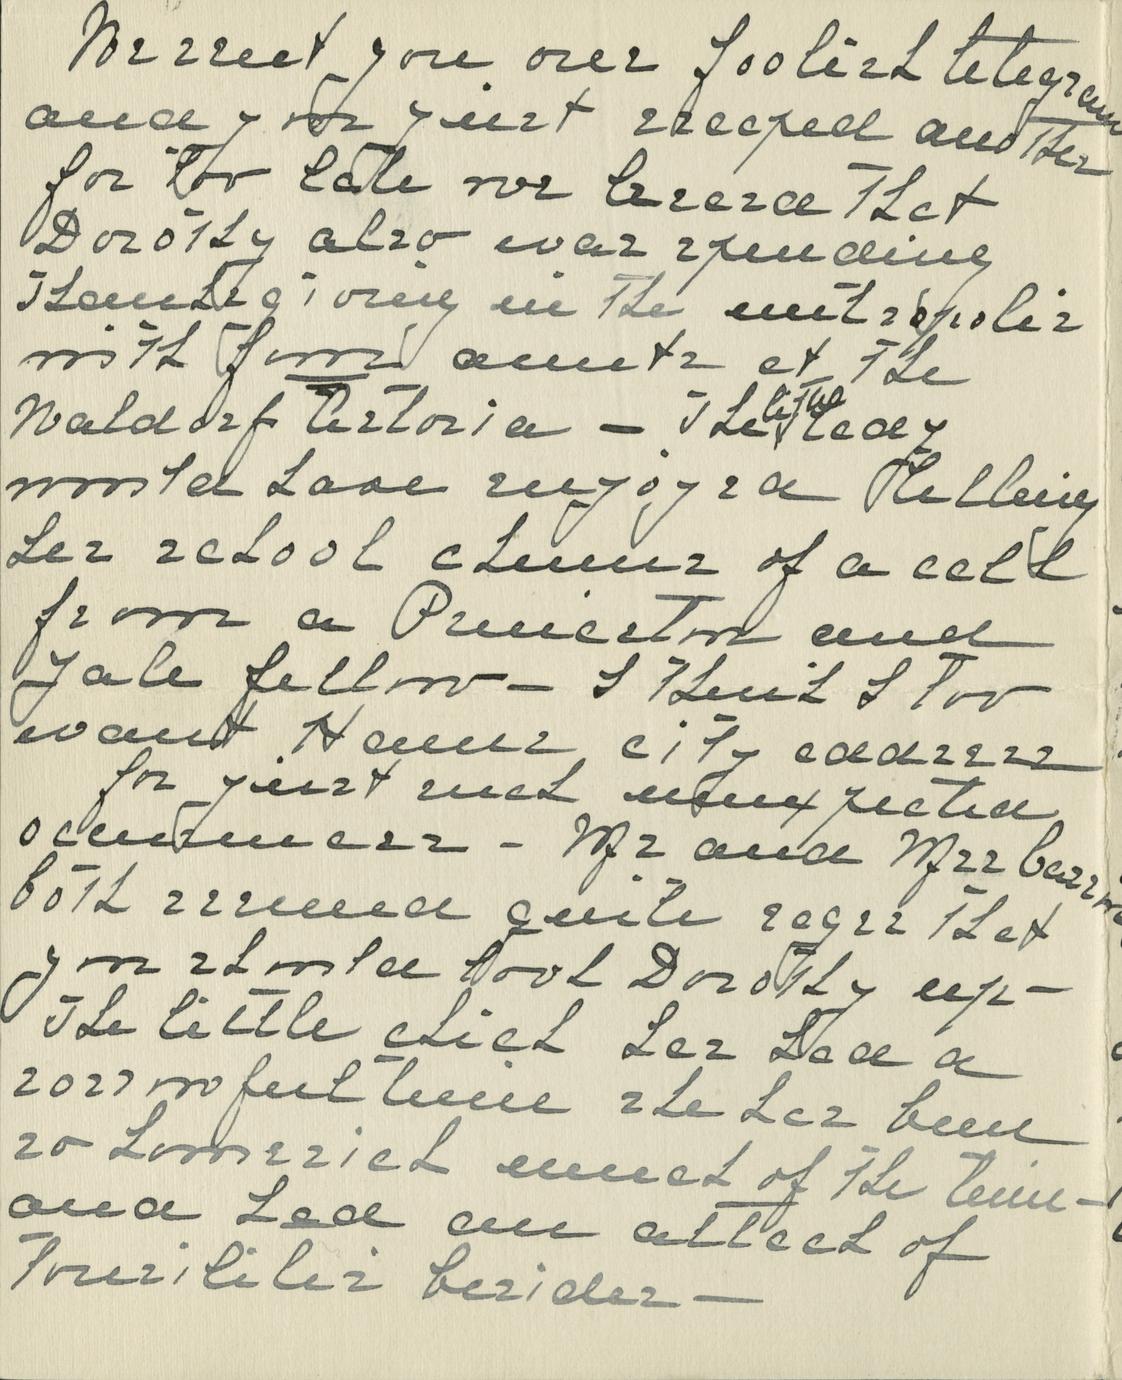 We sent you one foolish telegram
and you just escaped another
for too late we learned that
Dorothy also was spending
Thanksgiving in the metropolis
with four aunts at the
Waldorf Astoria - The little lady
would have enjoyed telling
her school chums of a call
from a Princeton and
Yale fellow - I think I too
want Hanns city address
for just such unexpected
occurrences - Mr and Mrs
both seemed quite eager that
you should look Dorothy up -
The little chick has had a
sorrowful time she has been
so homesick much of the time -
and had an attack of
Tonsilitis besides -